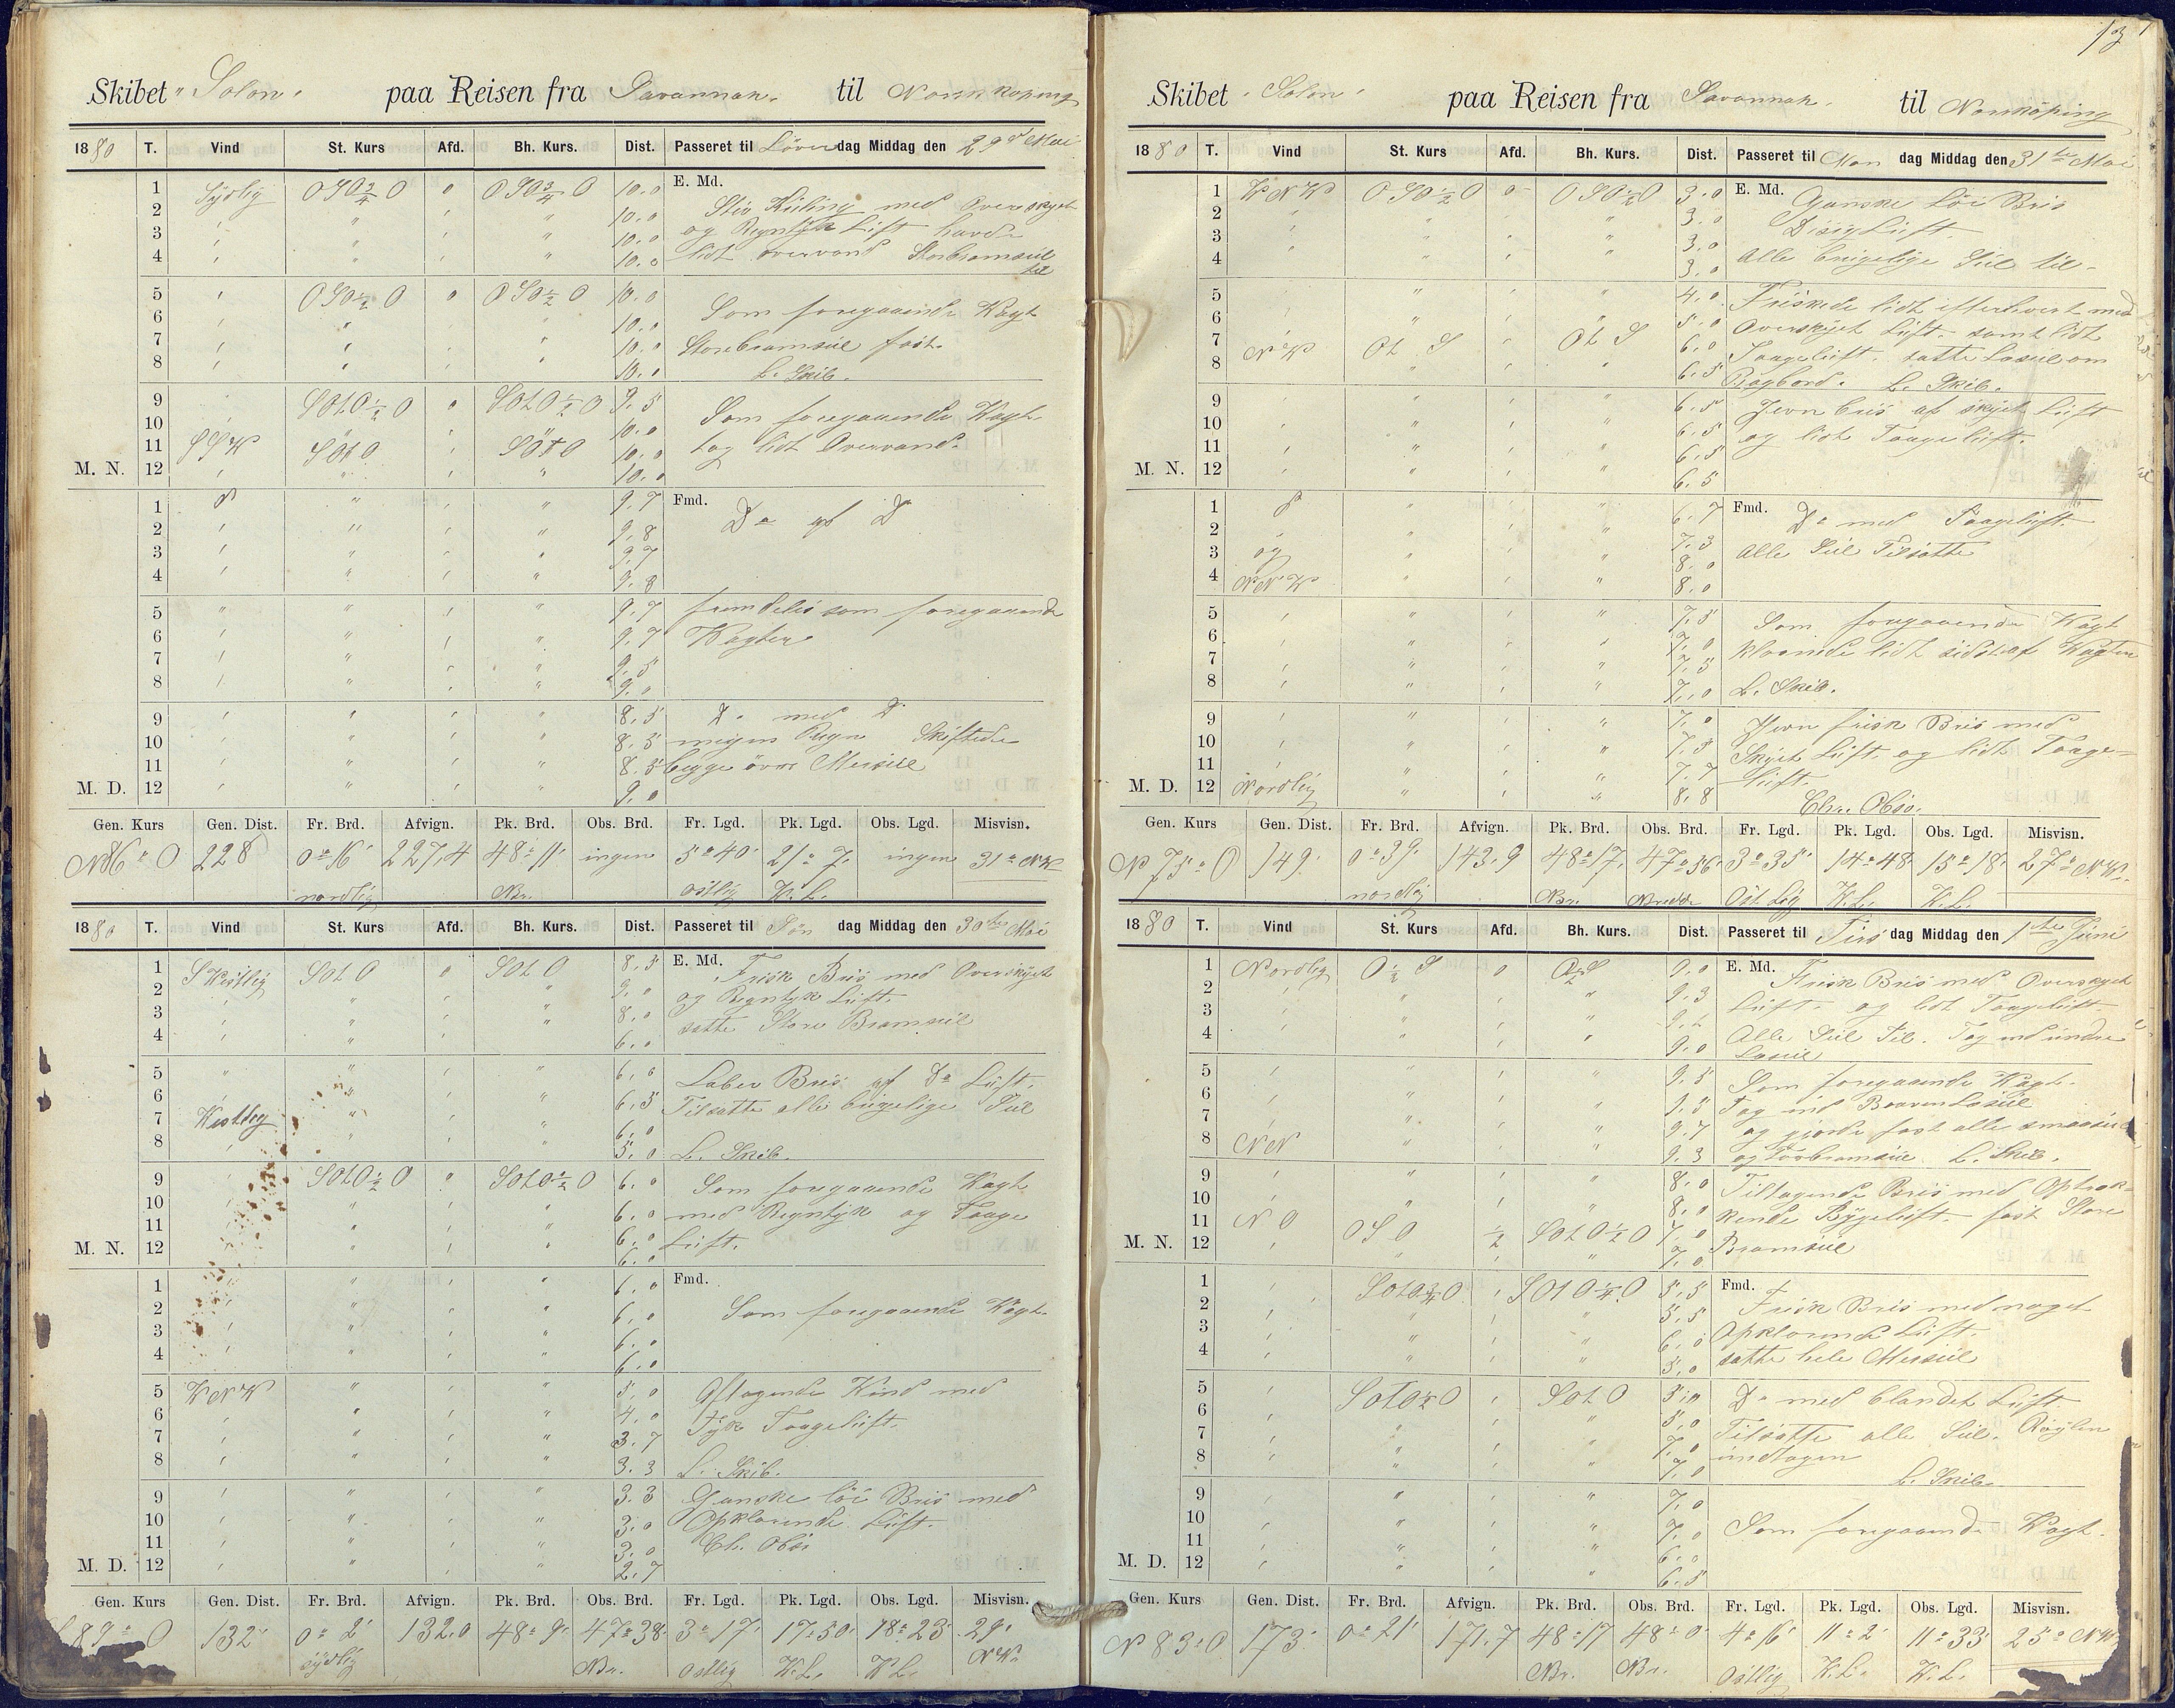 Skibet "Solon" paa Reisen fra Savannah. til Norrköping
1880 T. Vind St. Kurs Afd. Bh. Kurs. Dist. Passeret til Löver dag Middag den 29de Mai
1 Sydlig OSO 3/4 O " OSO 3/4 O 10.0 E. Md.
2 " " " 10.0 Stiv Kuling med Overskyet
3 " " " 10.0 og Regntyk Luft havde
4 " " " 10.0 lidt overvand Storbramseil
til
5 " OSO 1/2 O " OSO 1/2 O 10.0 Som foregaaende Vagt
6 " " " 10.0
7 " " " 10.0 Storebramseil fast.
8 " " " 10.0 L. Skib.
9 " SOtO 1/2 O " SOtO 1/2 O 9.5 Som foregaaende Vagt
10 " " " 10.0
11 SSW SOtO " SOtO 10.0 tog lidt Overvand.
M. N. 12 " " " 10.0
1 " " " 9.7 Fmd. Do af Do
2 " " " 9.8
3 " " " 9.7
4 " " " 9.8
5 " " " 9.7 fremdeles som foregaaende
6 " " " 9.7 Vagter
7 " " " 9.5
8 " " " 9.0
9 " " " 8.5 Do med Do
10 " " " 8.5 megen Regn Skiftede
11 " " " 8.5 begge övre Merseil
M. D. 12 " " " 9.0
Gen. Kurs Gen. Dist. Fr. Brd. Afvign. Pk. Brd. Obs. Brd. Fr. Lgd. Pk. Lgd. Obs. Lgd. Misvisn.
N86°O 228 0°16' 227.4 48°11' ingen 5°40' 21°7' ingen 31° NW
nordlig Br. östlig W.L.
1880 T. Vind St. Kurs Afd. Bh. Kurs. Dist. Passeret til Søn dag Middag den 30te Mai
1 SWestlig SOtO " SOtO 8.5 E. Md. Frisk Bris med Overskyet
2 " " " 9.0 og Regntyk Luft.
3 " " " 8.0 satte Store Bramseil
4 " " 6.0
5 " " " 6.6 Laber Bris af Do Luft.
6 " " " 6.5 Tilsatte alle brügelige Seil
7 Westlig " " 6.0
8 " " " 5.0 L. Skib.
9 " SOtO 1/2 O " SOtO 1/2 O 6.0 Som foregaaende Vagt
10 " " " 6.0 med Regntyk og Taage
11 " " " 6.0 Luft.
M. N. 12 " " " 6.0
1 " " " 6.0 Fmd.
2 " " " 6.0 Som foregaaende Vagt.
3 " " " 6.0
4 " " " 6.0
5 WNW " " 5.0 Aftagende Vind med
6 " " " 4.0 Tyk Taageluft.
7 " " " 3.7
8 " " " 3.3 L. Skib.
9 " " " 3.3 Ganske löi Bris med
10 " " " 3.0 Opklarende Luft.
11 " " " 3.0 Chr. Obs.
M. D. 12 " " " 2.7
Gen. Kurs Gen. Dist. Fr. Brd. Afvign. Pk. Brd. Obs. Brd. Fr. Lgd. Pk. Lgd. Obs. Lgd. Misvisn.
89° O 132' 0°2' 132.0 48°9' 47°38' 3°17' 17.50' 18°23' 29°
sydlig Br. Östlig W.L. W.L. NW.
13
Skibet "Solon" paa Reisen fra Savannah. til Norrköping
1880 T. Vind St. Kurs Afd. Bh. Kurs. Dist. Passeret til Man dag Middag den 31te Mai
1 WNW OSO 1/2 O " OSO 1/2 O 3.0 E. Md. Ganske Löi Bris
2 " " " 3.0 Disig Luft.
3 " " " 3.0
4 " " " 3.0 Alle brügelige Seil til.
5 " " " 4.0 Friskede lidt efterhvert med
6 " " " 5.0 Overskyet Luft. samt lidt
7 " Ot S " Ot S 6.0 Taageluft. satte Læseil om
8 NW " " 6.5 Bagbord. L. Skib.
9 " " " 6.5 Jevn bris af skyet Luft
10 " " " 6.5 og lidt Taageluft.
11 " " " 6.5
M. N. 12 " " " 6.5
1 " " " 6.7 Fmd. Do med Taageluft.
2 " " " 7.3
3 og " " 8.0 Alle Seil Tilsatte
4 NNW " " 8.0
5 " " " 7.5 Som foregaaende Vagt
6 " " " 7.0 klarnede lidt sidst af Vagten
7 " " " 7.5
8 " " " 7.0 L. Skib.
9 " " " 7.0 Jevn frisk Bris med
10 " " " 7.3 Skyet Luft. og lidt Taage-
11 " " " 7.7 luft.
M. D. 12 Nordlig " " 8.8 Chr. Obs.
Gen. Kurs Gen. Dist. Fr. Brd. Afvign. Pk. Brd. Obs. Brd. Fr. Lgd. Pk. Lgd. Obs. Lgd. Misvisn.
N 75° O 149' 0°39' 143.9 48°17' 47°56' 3°35' 14°48' 15°18' 27° NW.
nordlig Br. Bredde Östlig W.L. W.L.
1880 T. Vind St. Kurs Afd. Bh. Kurs. Dist. Passeret til Tirs dag Middag den 1ste Juni
1 Nordlig O 1/2 S " O 1/2 S 9.0 E. Md. Frisk Bris med Overskyet
2 " " " 9.3 Luft. og lidt Taageluft
3 " " " 9.2
4 " " " 9.0 Alle Seil til. Tog ind undre
Læseil
5 " " " 9.5 Som foregaaende Vagt.
6 " " " 9.5 Tog ind Læseil
7 " " " 9.7 og gjorde fast alle smaaseil
8 NN " " 9.3 og Forbramseil L. Skib.
9 " " " 8.0 Tiltagende Bris med Optræk-
10 " " " 8.0 kende Bygeluft. fast Store
11 NO OSO 1/2 SOtO 1/2 O 7.0
M. N. 12 " " " 7.0 Bramseil
1 " SOtO 3/4 O " SOtO 1/4 O 5.5 Fmd.
2 " " " 5.5 Frisk Bris med noget
3 " " " 6.0 Opklarende Luft.
4 " " " 5.0 satte hele Merseil
5 " SOtO 1/2 O " SOtO 5.0 Do med blandet Luft.
6 " " " 5.0 Tilsatte alle Seil. Röylen
7 " " " 7.0
8 " " " 7.0 undtagen
L. Skib.
9 " " " 7.0
10 " " " 7.0 Som foregaaende Vagt.
11 " " " 6.0
M. D. 12 " " " 6.5
Gen. Kurs Gen. Dist. Fr. Brd. Afvign. Pk. Brd. Obs. Brd. Fr. Lgd. Pk. Lgd. Obs. Lgd. Misvisn.
N 83° O 173' 0°21' 171.7 48°17 48°0' 4°16' 11°2' 11°33' 25° NW
Br. Br. Östlig W.L. W.L.